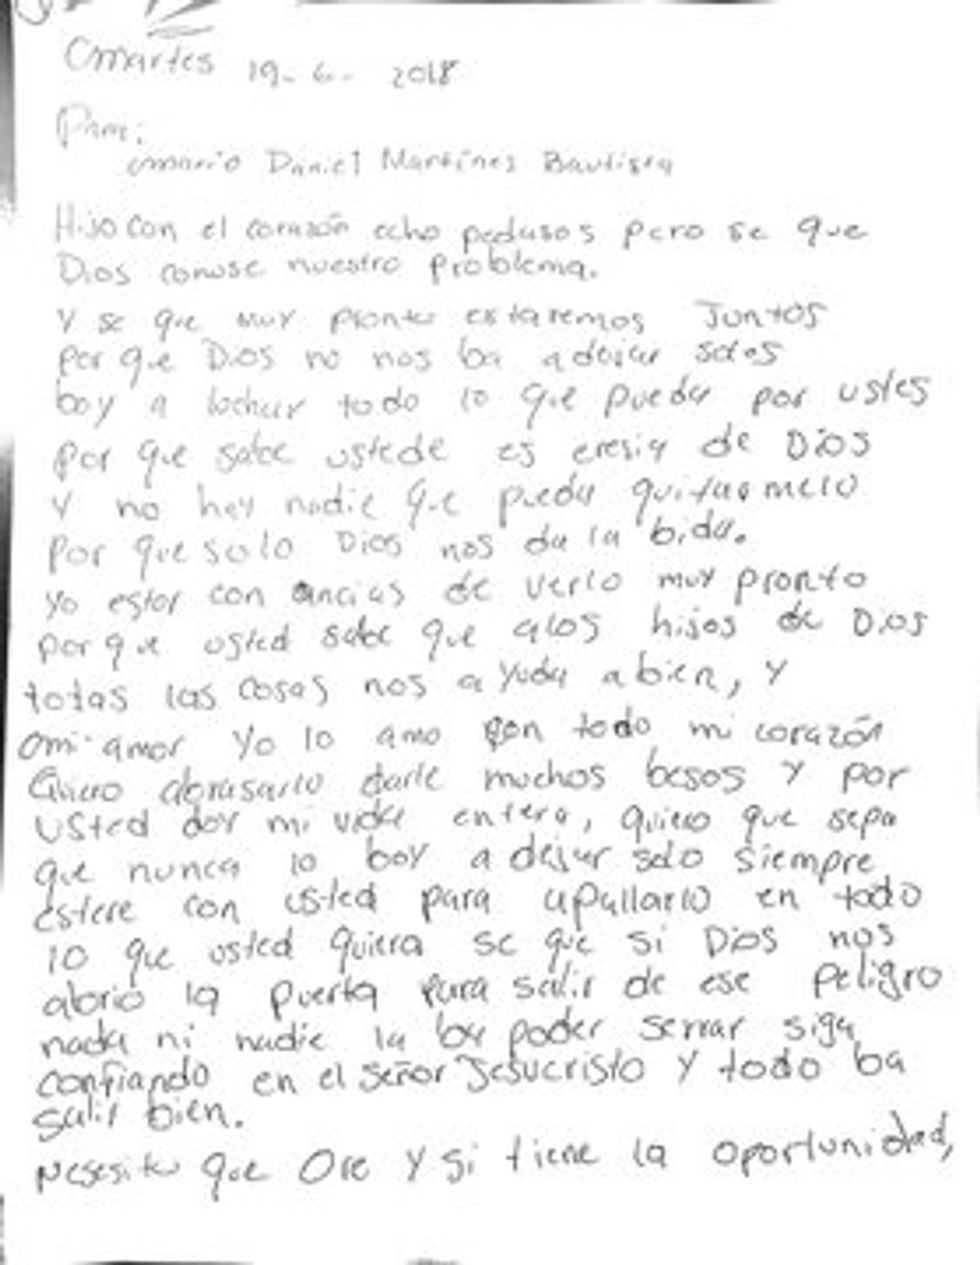 Martes 19-6-2018
Para:
Mario Daniel Martines Bautista
Hijo con el corazón echo pedasos pero se que
Dios conose nuestro problema.
Y se que muy pronto estaremos Juntos
por que Dios no nos ba a dejar solos
boy a luchar todo lo que pueda por ustes
por que sabe ustede es eresia de Dios
Y no hay nadie que pueda quitarmelo
Por que solo Dios nos da la bida.
Yo estoy con ancias de verlo muy pronto
por que usted sabe que alos hijos de Dios
totas las cosas nos ayuda a bien, y
mi amor Yo lo amo con todo mi corazón
Quiero abrasarlo darle muchos besos y por
usted doy mi vida entera, quiero que sepa
que nunca lo boy a dejar solo siempre
estere con usted para apullarlo en todo
lo que usted quiera se que si Dios nos
abrio la puerta para salir de ese peligro
nada ni nadie la ba poder serrar siga
confiando en el señor Jesucristo y todo ba
salir bien.
Nesesito que Ore y si tiene la oportunidad,